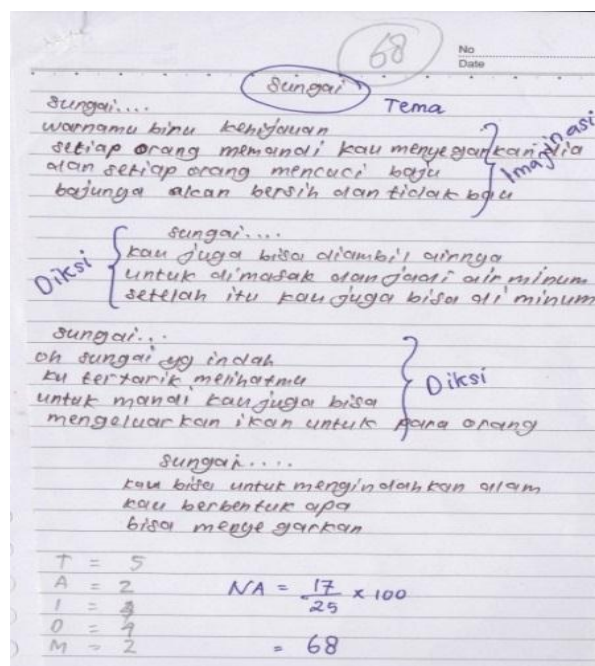 68
No
Date
Sungai
Tema
sungai....
warnamu biru kehijauan
setiap orang memandi kau menyegarkan dia
dan setiap orang mencuci baju
bajunya akan bersih dan tidak bau
Imajinasi
sungai....
kau juga bisa diambil airnya
untuk dimasak dan jadi air minum
setelah itu kau juga bisa di minum
Diksi
sungai...
oh sungai yg indah
ku tertarik melihatmu
untuk mandi kau juga bisa
mengeluarkan ikan untuk para orang
Diksi
sungai....
kau bisa untuk mengindahkan alam
kau berbentuk apa
bisa menyegarkan
T = 5
A = 2
I =
D = 4
M = 2
NA = 17/25 x 100
= 68